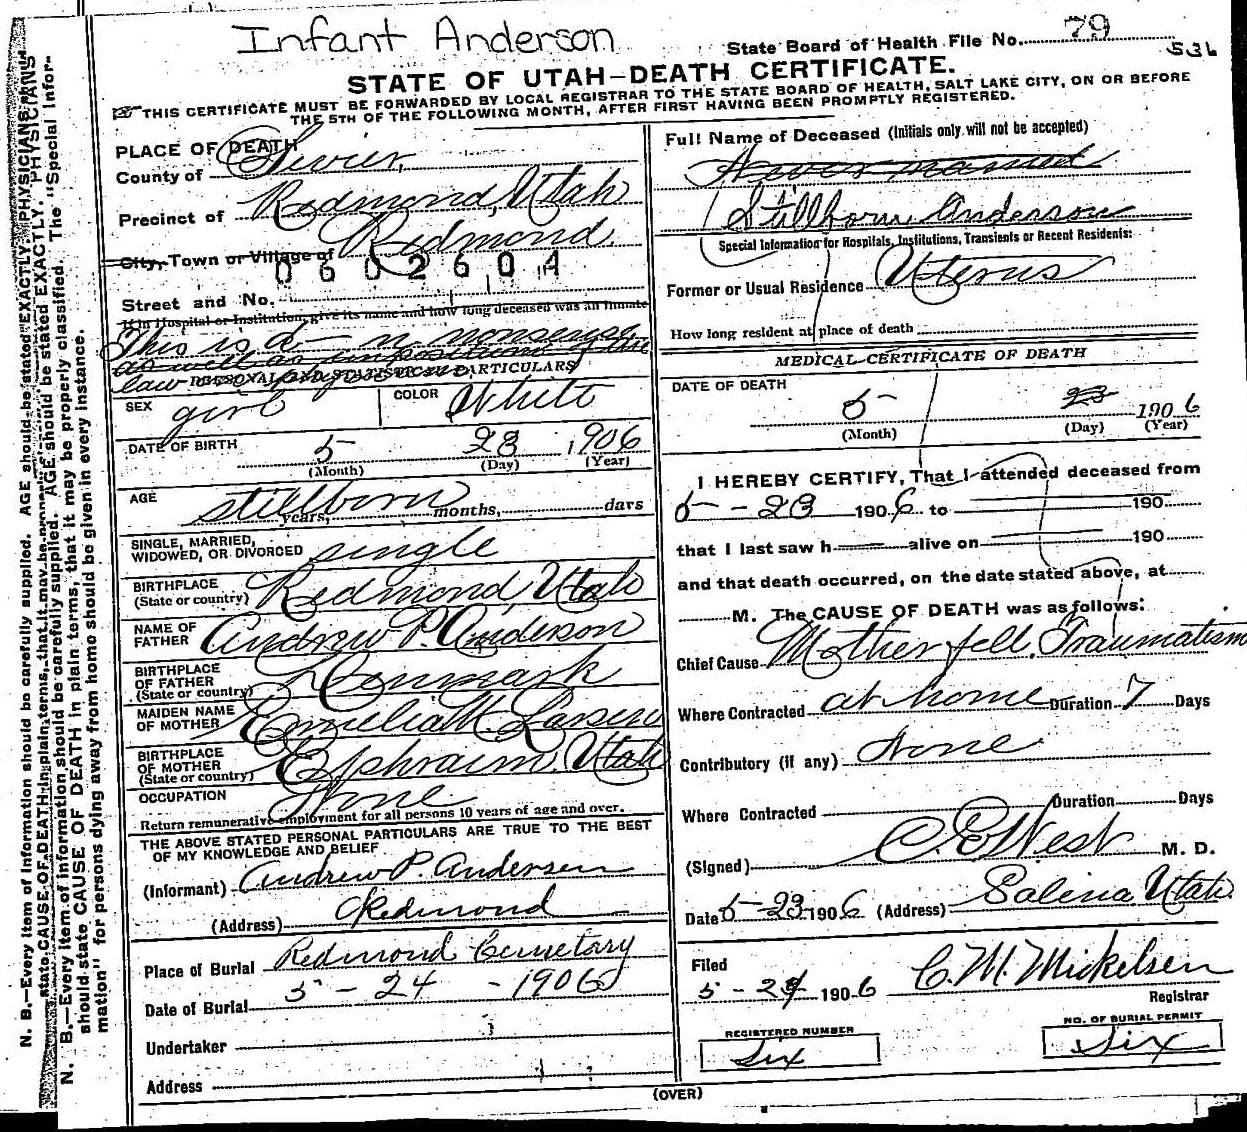 Infant Anderson
State Board of Health File No. 79
536
STATE OF UTAH—DEATH CERTIFICATE.
THIS CERTIFICATE MUST BE FORWARDED BY LOCAL REGISTRAR TO THE STATE BOARD OF HEALTH, SALT LAKE CITY, ON OR BEFORE
THE 5TH OF THE FOLLOWING MONTH, AFTER FIRST HAVING BEEN PROMPTLY REGISTERED.
PLACE OF DEATH
County of Sevier,
Precinct of Redmond, Utah
City, Town or Village of Redmond.
0602604
Street and No.
If in Hospital or Institution, give its name and how long deceased was an inmate
This is d—n nonsense
as well as imposition of the
law physician
PERSONAL AND STATISTICAL PARTICULARS
SEX girl COLOR White
DATE OF BIRTH 5 23 1906
(Month) (Day) (Year)
AGE stillborn
years, months, days
SINGLE, MARRIED,
WIDOWED, OR DIVORCED single
BIRTHPLACE
(State or country) Redmond, Utah
NAME OF
FATHER Andrew P. Anderson
BIRTHPLACE
OF FATHER
(State or country) Denmark
MAIDEN NAME
OF MOTHER Emelia M. Larsen
BIRTHPLACE
OF MOTHER
(State or country) Ephraim, Utah
OCCUPATION None
Return remunerative employment for all persons 10 years of age and over.
THE ABOVE STATED PERSONAL PARTICULARS ARE TRUE TO THE BEST
OF MY KNOWLEDGE AND BELIEF
(Informant) Andrew P. Andersen
(Address) Redmond
Place of Burial Redmond Cemetary
Date of Burial 5 - 24 - 1906
Undertaker
Address
Full Name of Deceased (Initials only will not be accepted)
Never named
Stillborn Anderson
Special Information for Hospitals, Institutions, Transients or Recent Residents:
Former or Usual Residence Uterus
How long resident at place of death
MEDICAL CERTIFICATE OF DEATH
DATE OF DEATH
5 23 1906
(Month) (Day) (Year)
I HEREBY CERTIFY, That I attended deceased from
5 - 23 1906 to 190
that I last saw h alive on 190
and that death occurred, on the date stated above, at
M. The CAUSE OF DEATH was as follows:
Chief Cause Mother fell. Traumatism
Where Contracted at home Duration 7 Days
Contributory (if any) None
Where Contracted Duration Days
(Signed) C. E. West M. D.
Date 5-23-1906 (Address) Salina Utah.
Filed
5 - 24 1906 C. M. Mickelsen
Registrar
REGISTERED NUMBER
Six
NO. OF BURIAL PERMIT
Six
(OVER)
N. B.—Every item of information should be carefully supplied. AGE should be stated EXACTLY. PHYSICIANS
should state CAUSE OF DEATH in plain terms, that it may be properly classified. The "Special Infor-
mation" for persons dying away from home should be given in every instance.